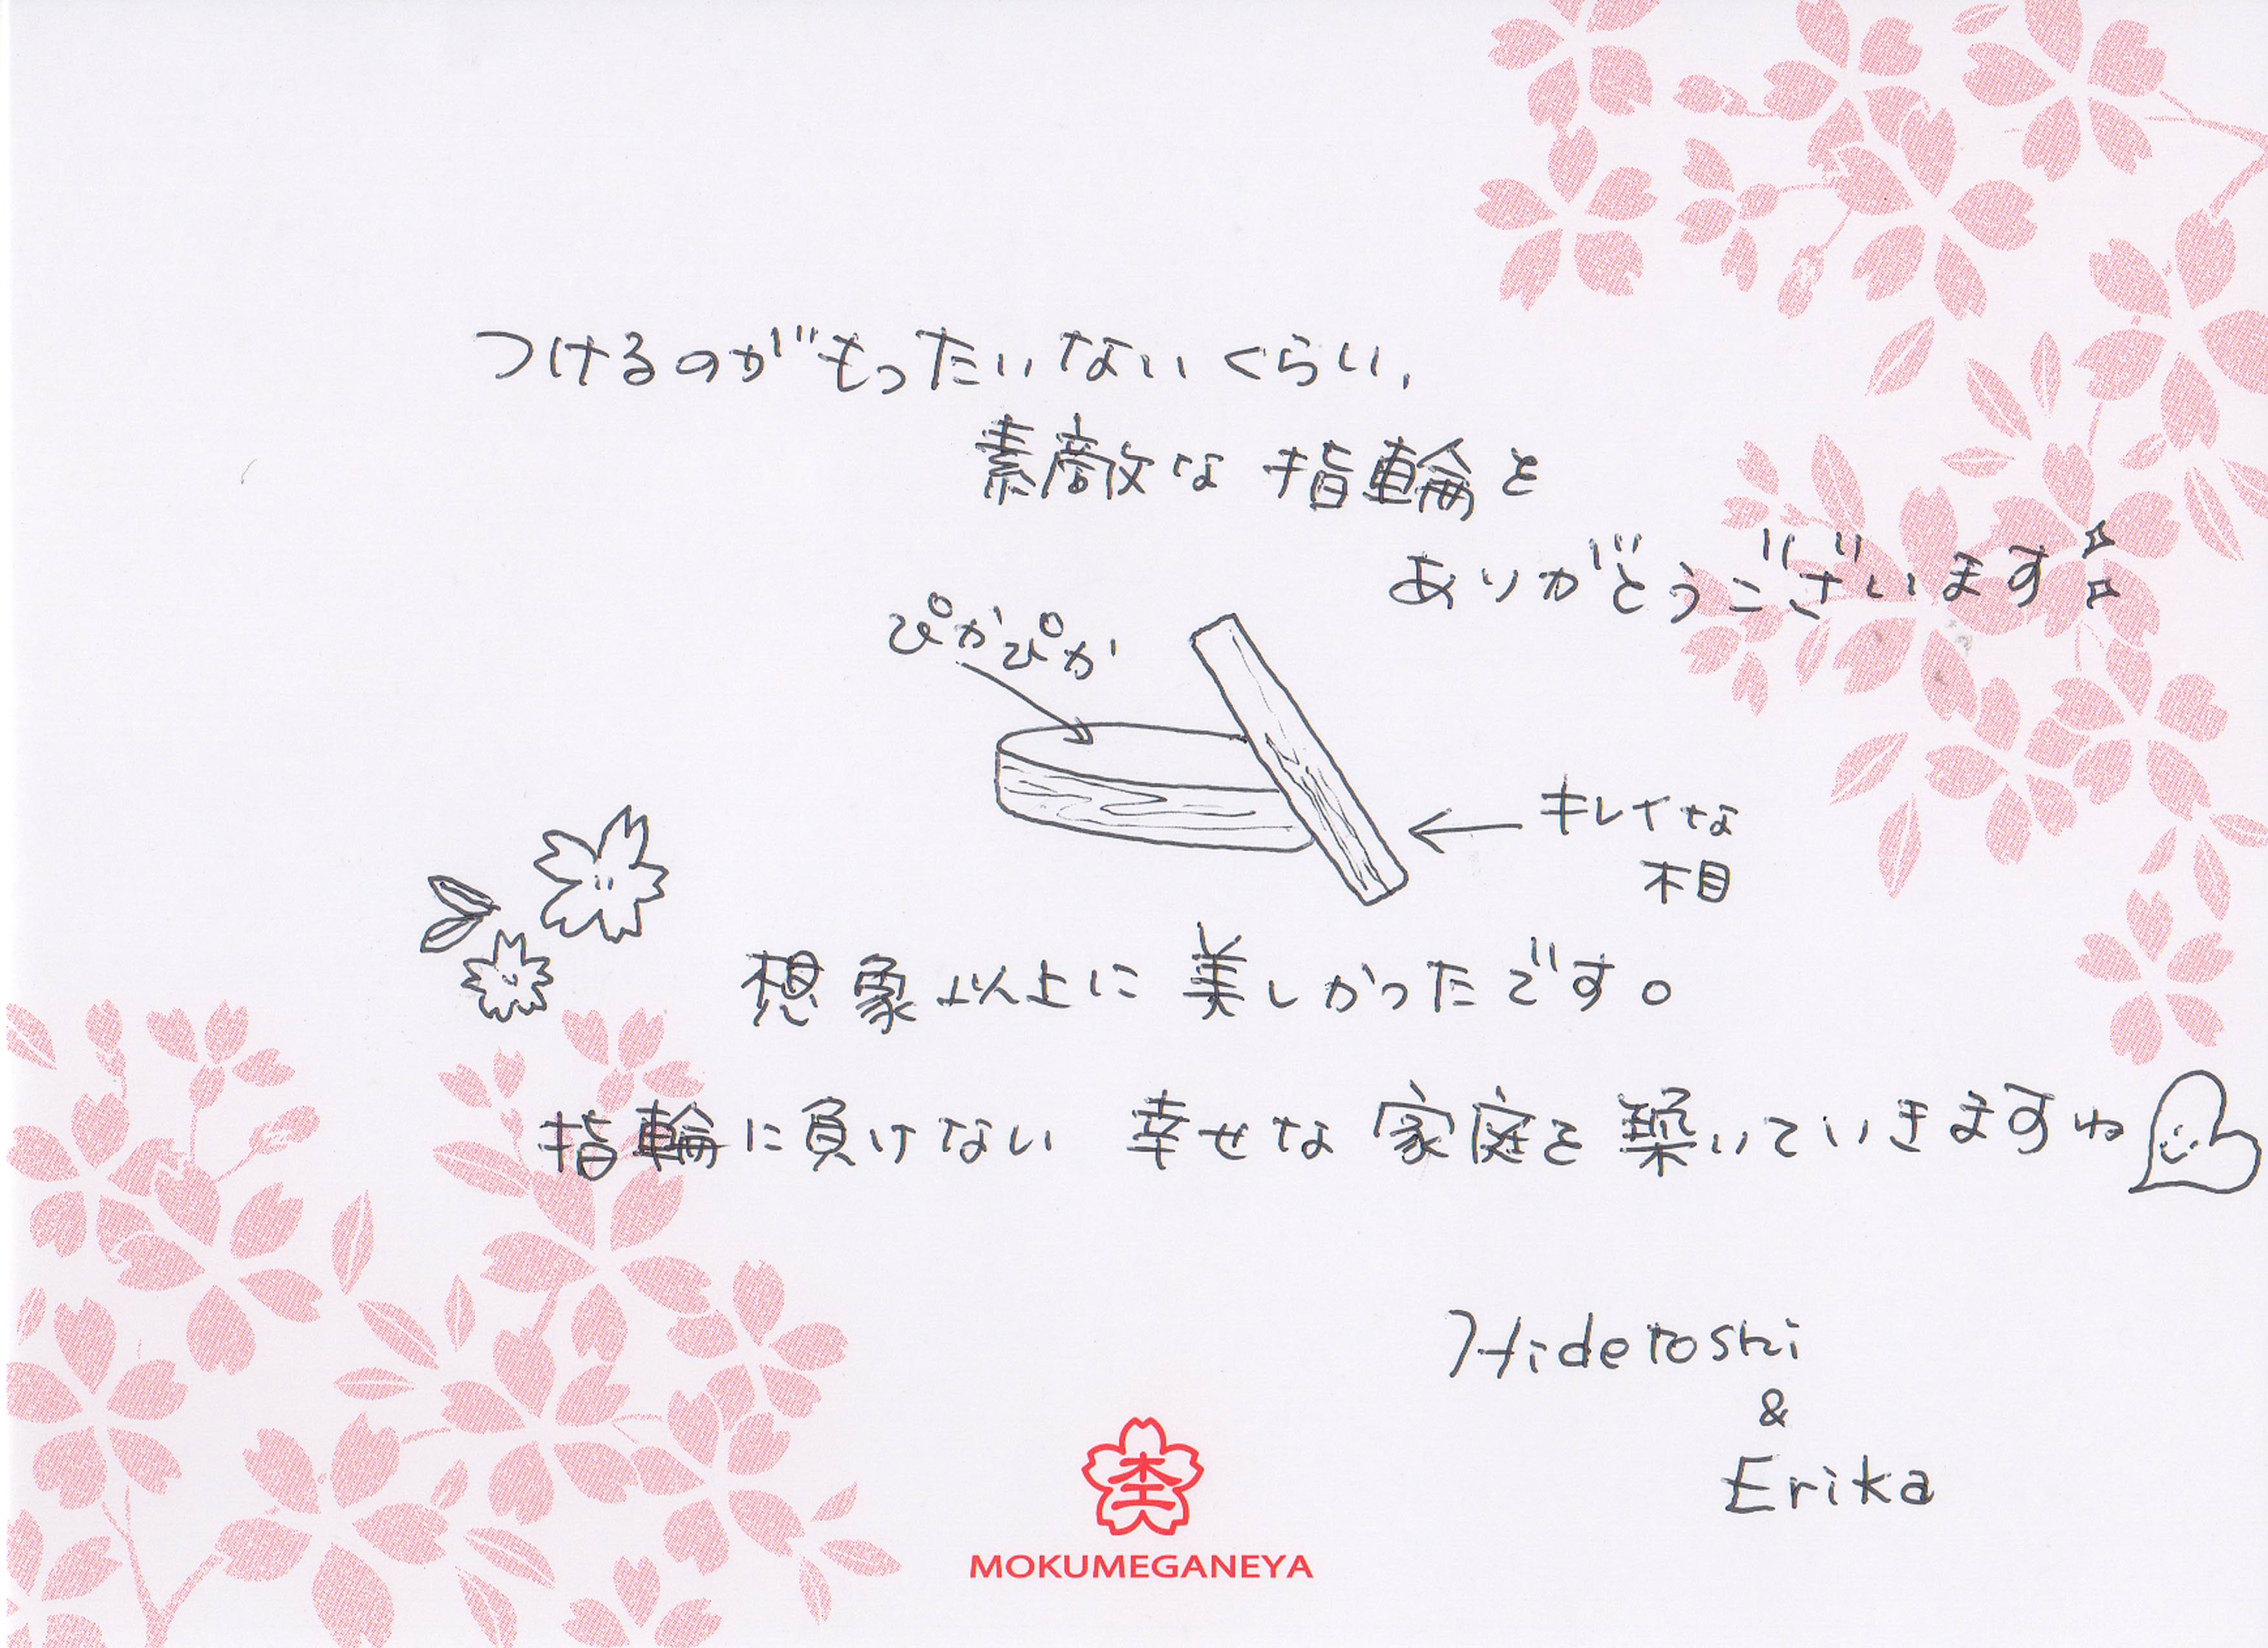 つけるのがもったいないくらい、
素敵な指輪を
ありがとうございます
ぴかぴか
キレイな
木目
想象以上に美しかったです。
指輪に負けない 幸せな家庭を築いていきますね
Hidetoshi
&
Erika
杢
MOKUMEGANEYA